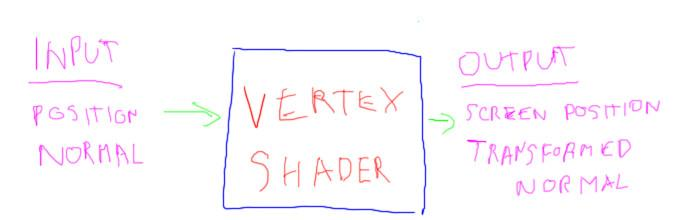 INPUT
POSITION
NORMAL
VERTEX
SHADER
OUTPUT
SCREEN POSITION
TRANSFORMED
NORMAL